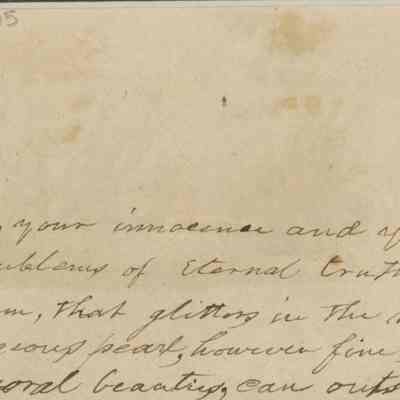 95
your innocence and y
emblems of Eternal truth
m, that glitters in the
geous pearl, however fine
oral beauties, can outs